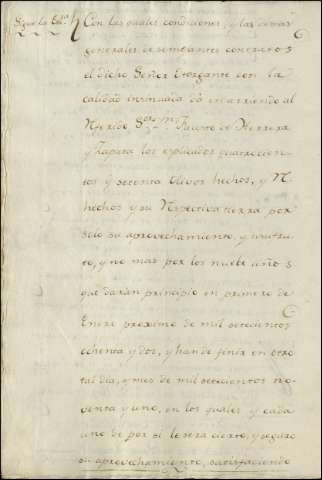 Sigue la Esc.ra
Con las quales condiciones, y las demas
generales de semejantes contratos
el dicho Señor Otorgante con la
calidad insinuada dá en arriendo al
referido
y Zapata los explicados quatrocien-
tos y setenta Olivos hechos, y
hechos y su respectiva tierra por
solo su aprovechamiento, y usufru-
to, y no mas por los nueve años
que darán principio en primero de
Enero proximo de mil setecientos
ochenta y dos, y han de fenir en otro
tal dia, y mes de mil setecientos no-
venta y uno, en los quales y cada
uno de por sí le será cierto, y seguro
su aprovechamiento, satisfaciendo